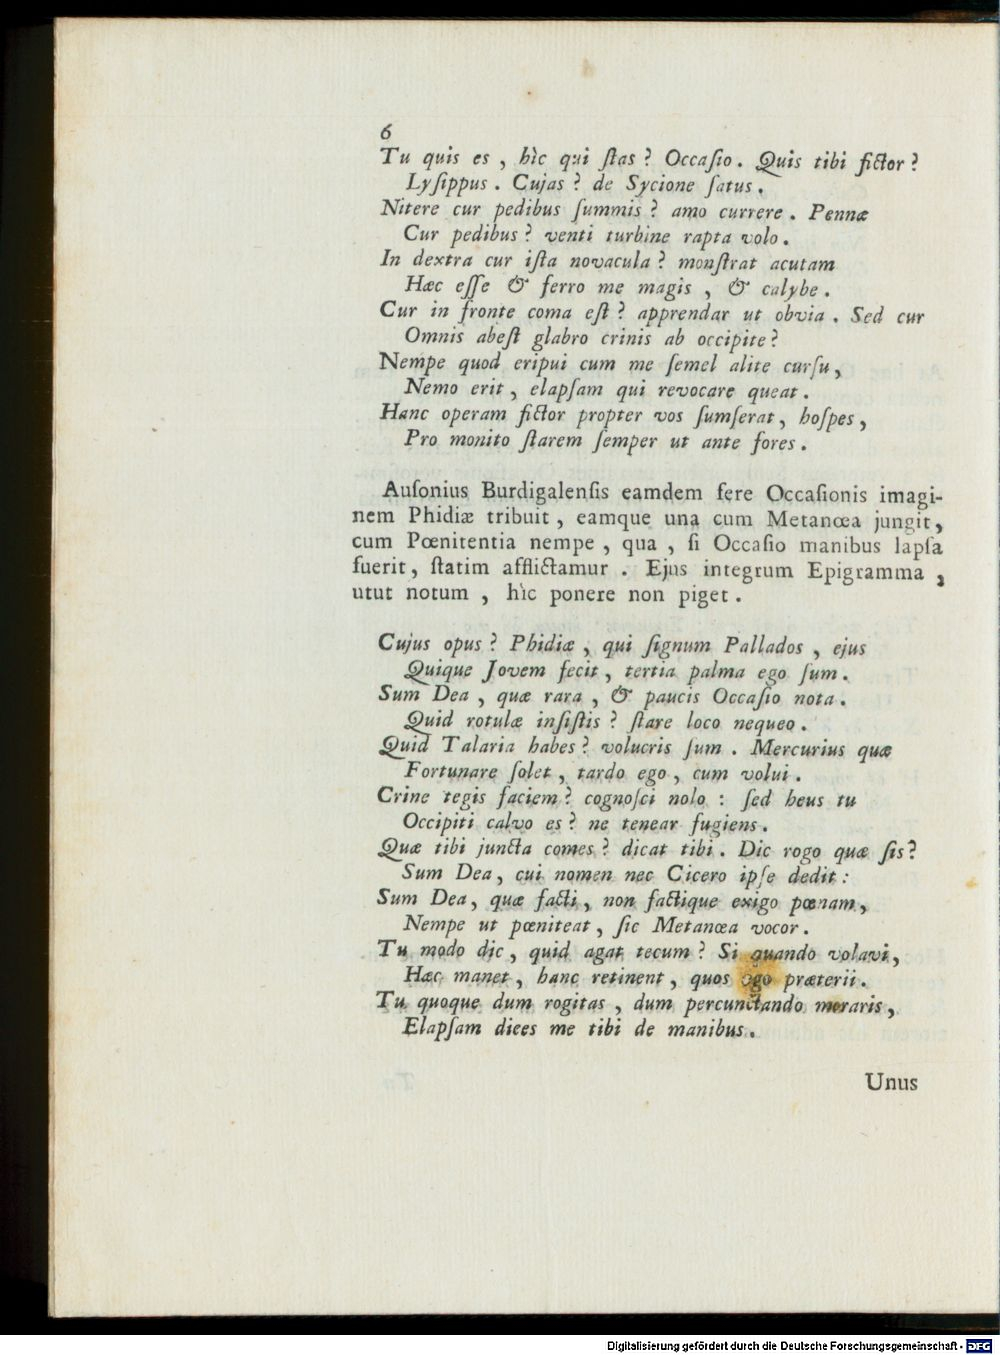 6
Tu quis es , hìc qui ſtas ? Occaſio . Quis tibi fictor ?
Lyſippus . Cujas ? de Sycione ſatus .
Nitere cur pedibus ſummis ? amo currere . Pennæ
Cur pedibus ? venti turbine rapta volo .
In dextra cur iſta novacula ? monſtrat acutam
Hæc eſſe & ferro me magis , & calybe .
Cur in fronte coma eſt ? apprendar ut obvia . Sed cur
Omnis abeſt glabro crinis ab occipite ?
Nempe quod eripui cum me ſemel alite curſu ,
Nemo erit , elapſam qui revocare queat .
Hanc operam fictor propter vos ſumſerat , hoſpes ,
Pro monito ſtarem ſemper ut ante fores .
Auſonius Burdigalenſis eamdem fere Occaſionis imagi-
nem Phidiæ tribuit , eamque una cum Metanœa jungit ,
cum Pœnitentia nempe , qua , ſi Occaſio manibus lapſa
fuerit , ſtatim afflictamur . Ejus integrum Epigramma ,
utut notum , hìc ponere non piget .
Cujus opus ? Phidiæ , qui ſignum Pallados , ejus
Quique Jovem fecit , tertia palma ego ſum .
Sum Dea , quæ rara , & paucis Occaſio nota .
Quid rotulæ inſiſtis ? ſtare loco nequeo .
Quid Talaria habes ? volucris ſum . Mercurius quæ
Fortunare ſolet , tardo ego , cum volui .
Crine tegis faciem ? cognoſci nolo : ſed heus tu
Occipiti calvo es ? ne tenear fugiens .
Quæ tibi juncta comes ? dicat tibi . Dic rogo quæ ſis ?
Sum Dea , cui nomen nec Cicero ipſe dedit :
Sum Dea , quæ facti , non factique exigo pœnam ,
Nempe ut pœniteat , ſic Metanœa vocor .
Tu modo dic , quid agat tecum ? Si quando volavi ,
Hæc manet , hanc retinent , quos ego præterii .
Tu quoque dum rogitas , dum percunctando moraris ,
Elapſam dices me tibi de manibus .
Unus
Digitalisierung gefördert durch die Deutsche Forschungsgemeinschaft - DFG